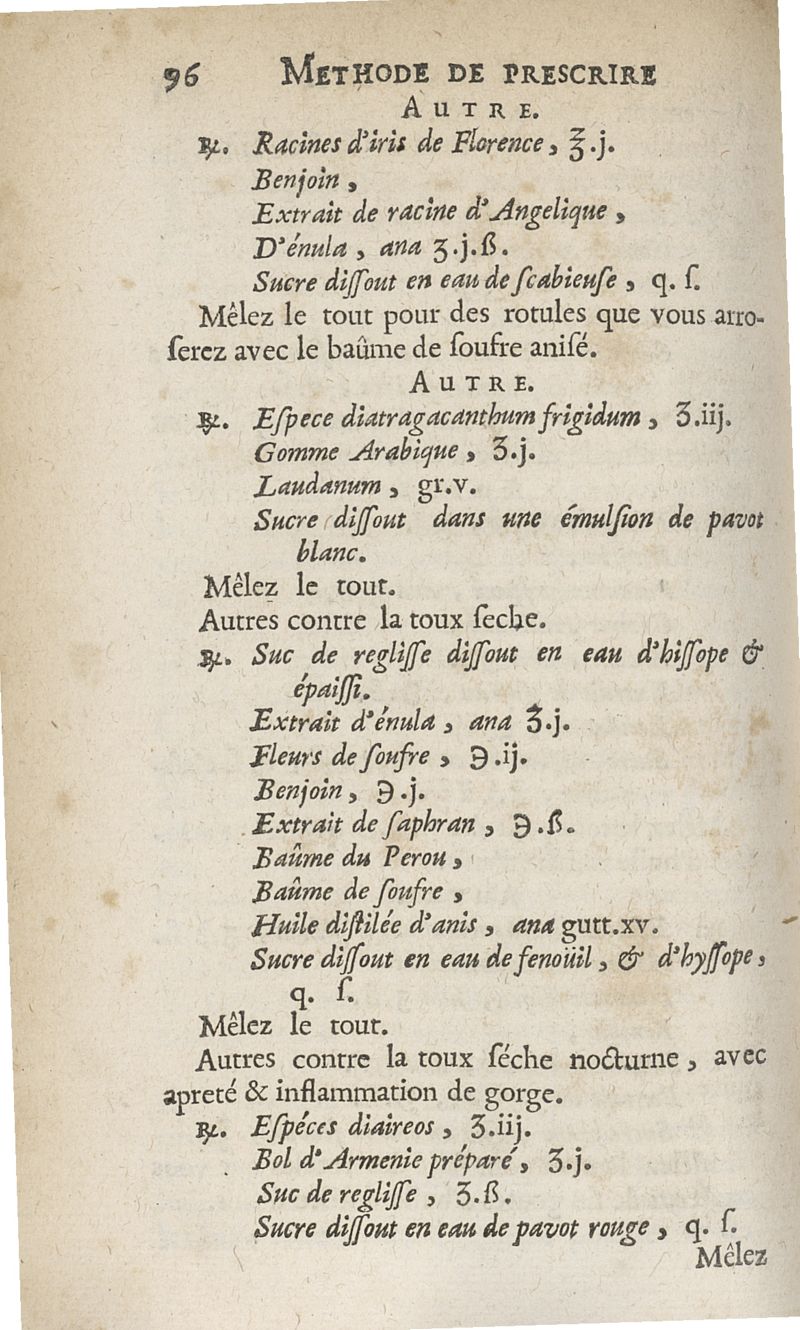 96 METHODE DE PRESCRIRE
AUTRE.
℞. Racines d'iris de Florence, ℥.j.
Benjoin,
Extrait de racine d'Angelique,
D'énula, ana ʒ.j.ß.
Sucre diſſout en eau de ſcabieuſe, q. ſ.
Mêlez le tout pour des rotules que vous arro-
ſerez avec le baûme de ſoufre aniſé.
AUTRE.
℞. Eſpece diatragacanthum frigidum, ʒ.iij.
Gomme Arabique, ʒ.j.
Laudanum, gr.v.
Sucre diſſout dans une émulſion de pavot
blanc.
Mêlez le tout.
Autres contre la toux ſeche.
℞. Suc de regliſſe diſſout en eau d'hiſſope &
épaiſſi.
Extrait d'énula, ana ʒ.j.
Fleurs de ſoufre, ℈.ij.
Benjoin, ℈.j.
Extrait de ſaphran, ℈.ß.
Baûme du Perou,
Baûme de ſoufre,
Huile diſtilée d'anis, ana gutt.xv.
Sucre diſſout en eau de fenoüil, & d'hyſſope,
q. ſ.
Mêlez le tout.
Autres contre la toux ſéche nocturne, avec
apreté & inflammation de gorge.
℞. Eſpéces diaireos, ʒ.iij.
Bol d'Armenie préparé, ʒ.j.
Suc de regliſſe, ʒ.ß.
Sucre diſſout en eau de pavot rouge, q. ſ.
Mêlez